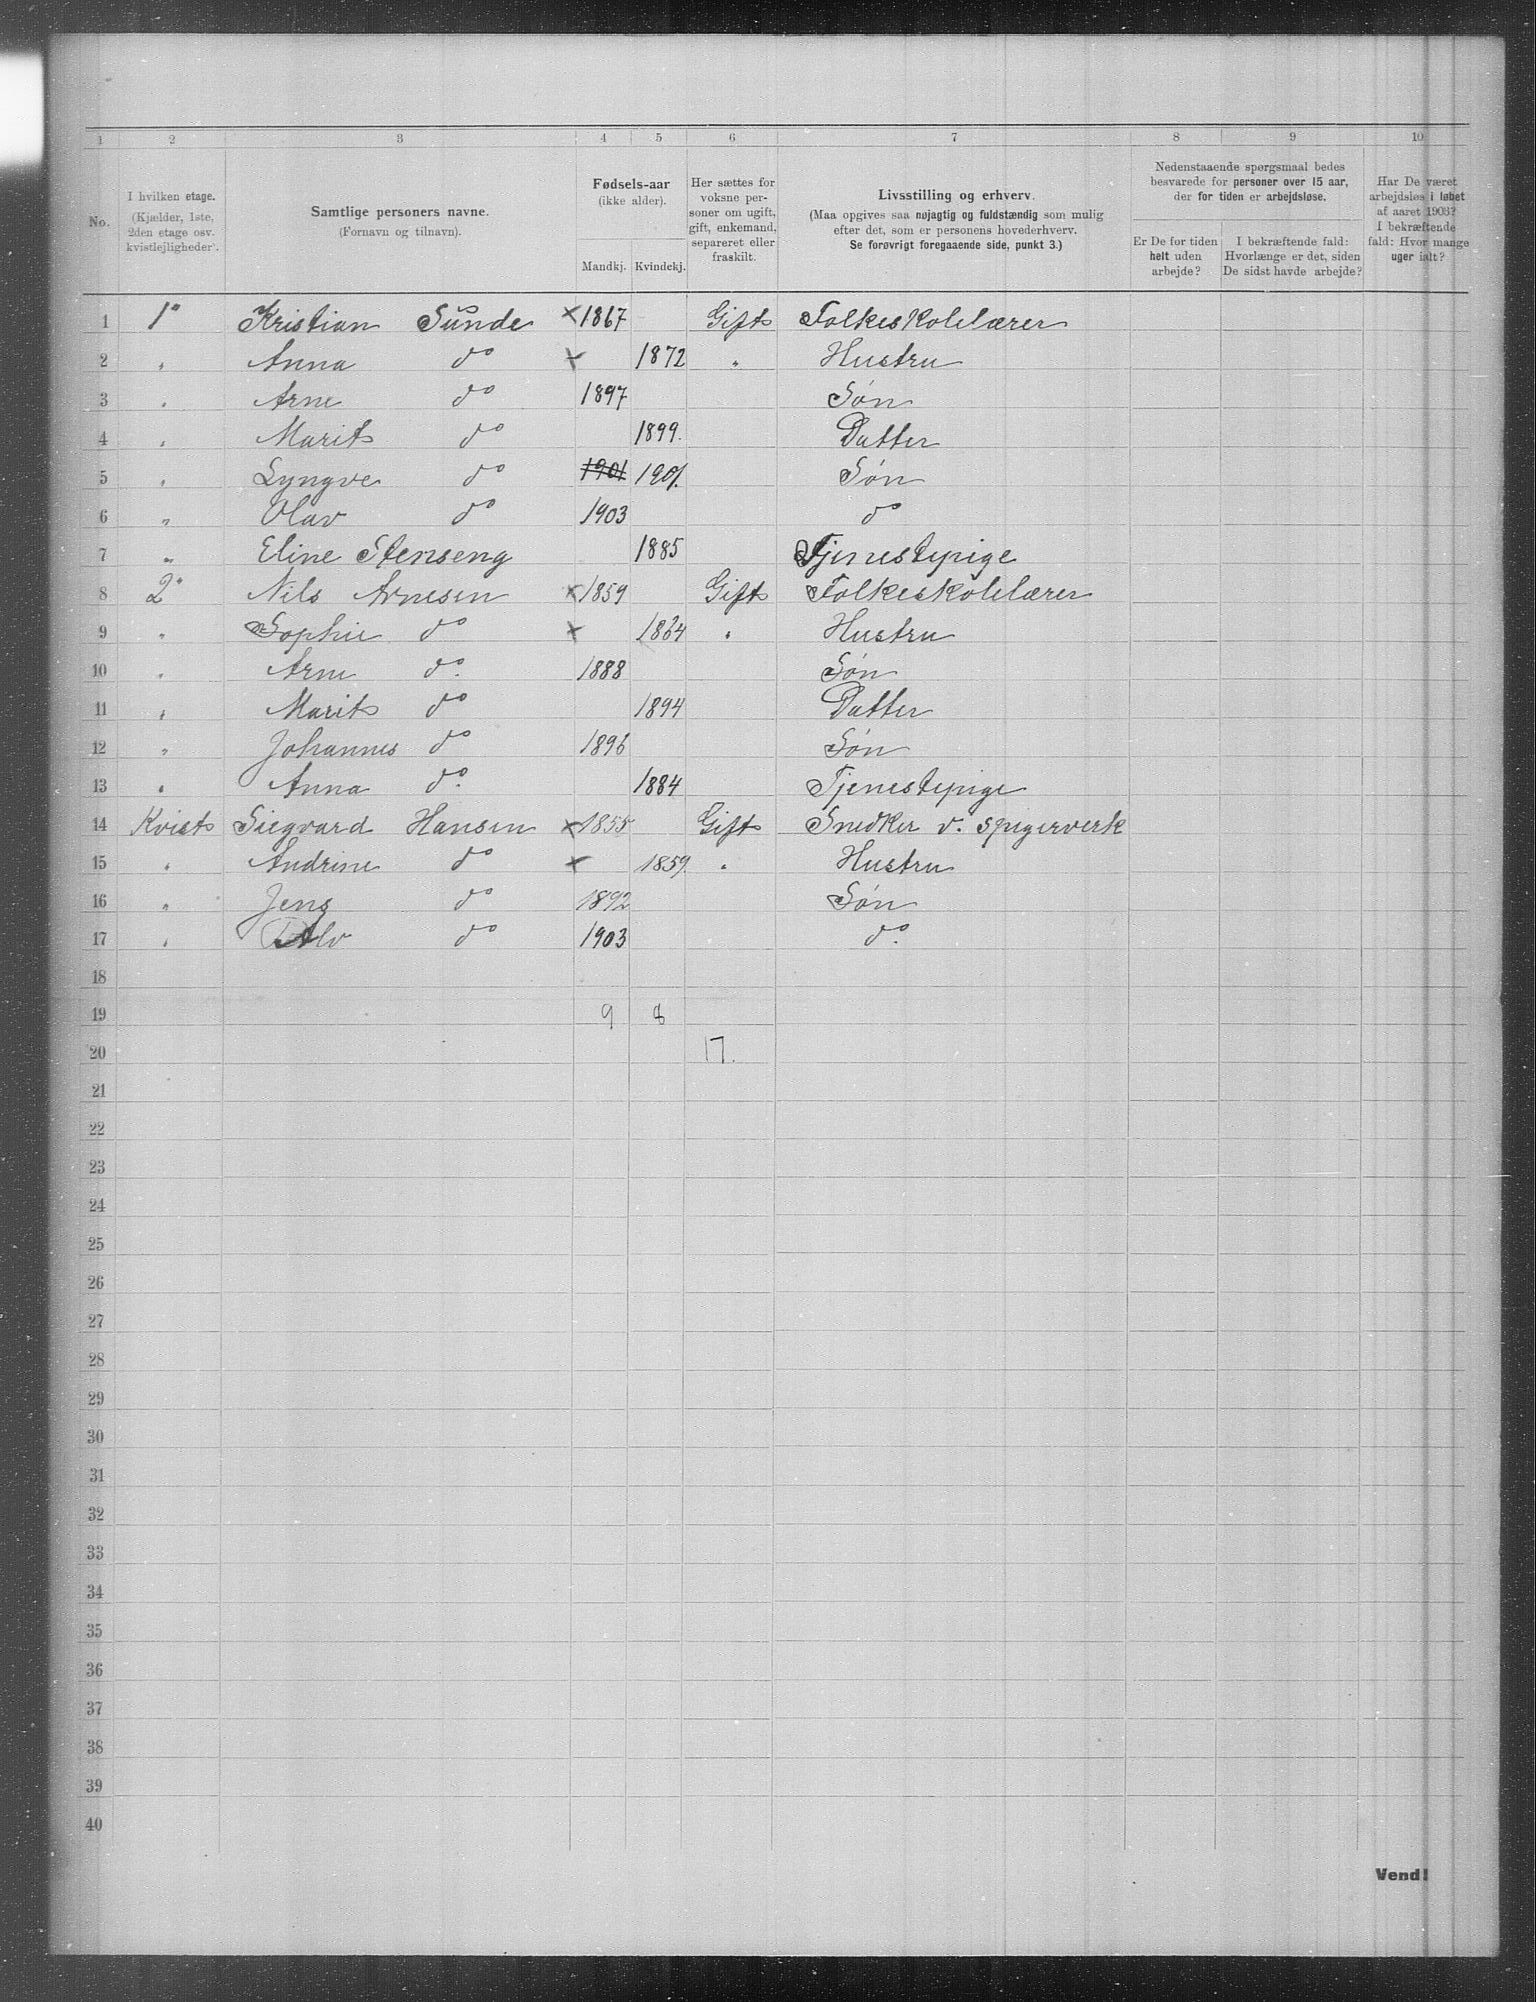 1 2 3 4 5 6 7 8 9 10
No. I hvilken etage. (Kjælder, 1ste, 2den etage osv. kvistlejligheder). Samtlige personers navne. (Fornavn og tilnavn). Fødsels-aar (ikke alder). Mandkj. Kvindekj. Her sættes for voksne personer om ugift, gift, enkemand, separeret eller fraskilt. Livsstilling og erhverv. (Maa opgives saa nøjagtig og fuldstændig som mulig efter det, som er personens hovederhverv. Se forøvrigt foregaaende side, punkt 3.) Nedenstaaende spørgsmaal bedes besvarede for personer over 15 aar, der for tiden er arbejdsløse. Er De for tiden helt uden arbejde? I bekræftende fald: Hvorlænge er det, siden De sidst havde arbejde? Har De været arbejdsløs i løbet af aaret 1903? I bekræftende fald: Hvor mange uger ialt?
1 1ᵒ Kristian Sunde × 1867 Gift Folkeskolelærer
2 " Anna do × 1872 " Hustru
3 " Arne do 1897 Søn
4 " Marit do 1899. Datter
5 " Lyngve do 1901 1901. Søn
6 " Olav do 1903 do
7 " Eline Stenseng 1885 Tjenestepige
8 2ᵒ Nils Arnesen × 1859 Gift Folkeskolelærer
9 " Sophie do × 1864 " Hustru
10 " Arne do. 1888 Søn
11 " Marit do 1894 Datter
12 " Johannes do 1896 Søn
13 " Anna do. 1884 Tjenestepige
14 Kvist Siegvard Hansen × 1855 Gift Snedker v. spigerverk
15 " Andrine do × 1859. " Hustru
16 " Jens do 1892 Søn
17 " Alv do 1903 do.
18
19 9 8
20 17.
21
22
23
24
25
26
27
28
29
30
31
32
33
34
35
36
37
38
39
40
Vend!